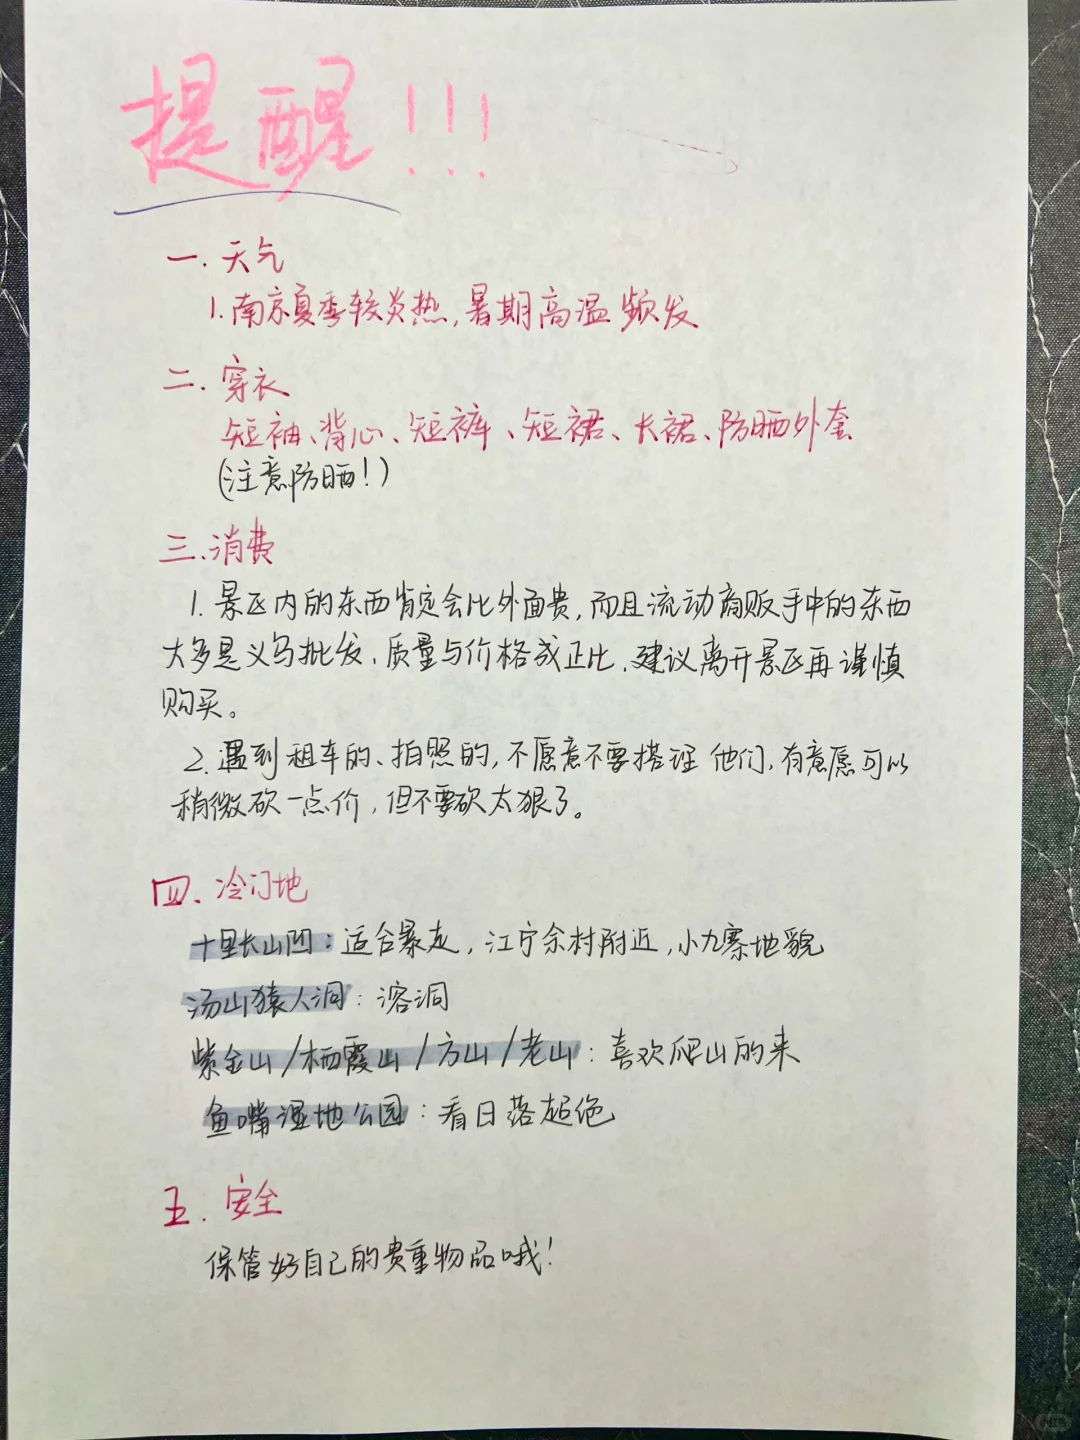 提醒!!!
一. 天气
1. 南京夏季较炎热,暑期高温频发
二. 穿衣
短袖、背心、短裤、短裙、长裙、防晒外套
(注意防晒!)
三.消费
1. 景区内的东西肯定会比外面贵,而且流动商贩手中的东西
大多是义乌批发、质量与价格成正比,建议离开景区再谨慎
购买。
2. 遇到租车的、拍照的,不愿意不要搭理他们,有意愿可以
稍微砍一点价,但不要砍太狠了。
四. 冷门地
十里长山凹:适合暴走,江宁佘村附近,小九寨地貌
汤山猿人洞:溶洞
紫金山/栖霞山/方山/老山:喜欢爬山的来
鱼嘴湿地公园:看日落超绝
五. 安全
保管好自己的贵重物品哦!
小红书